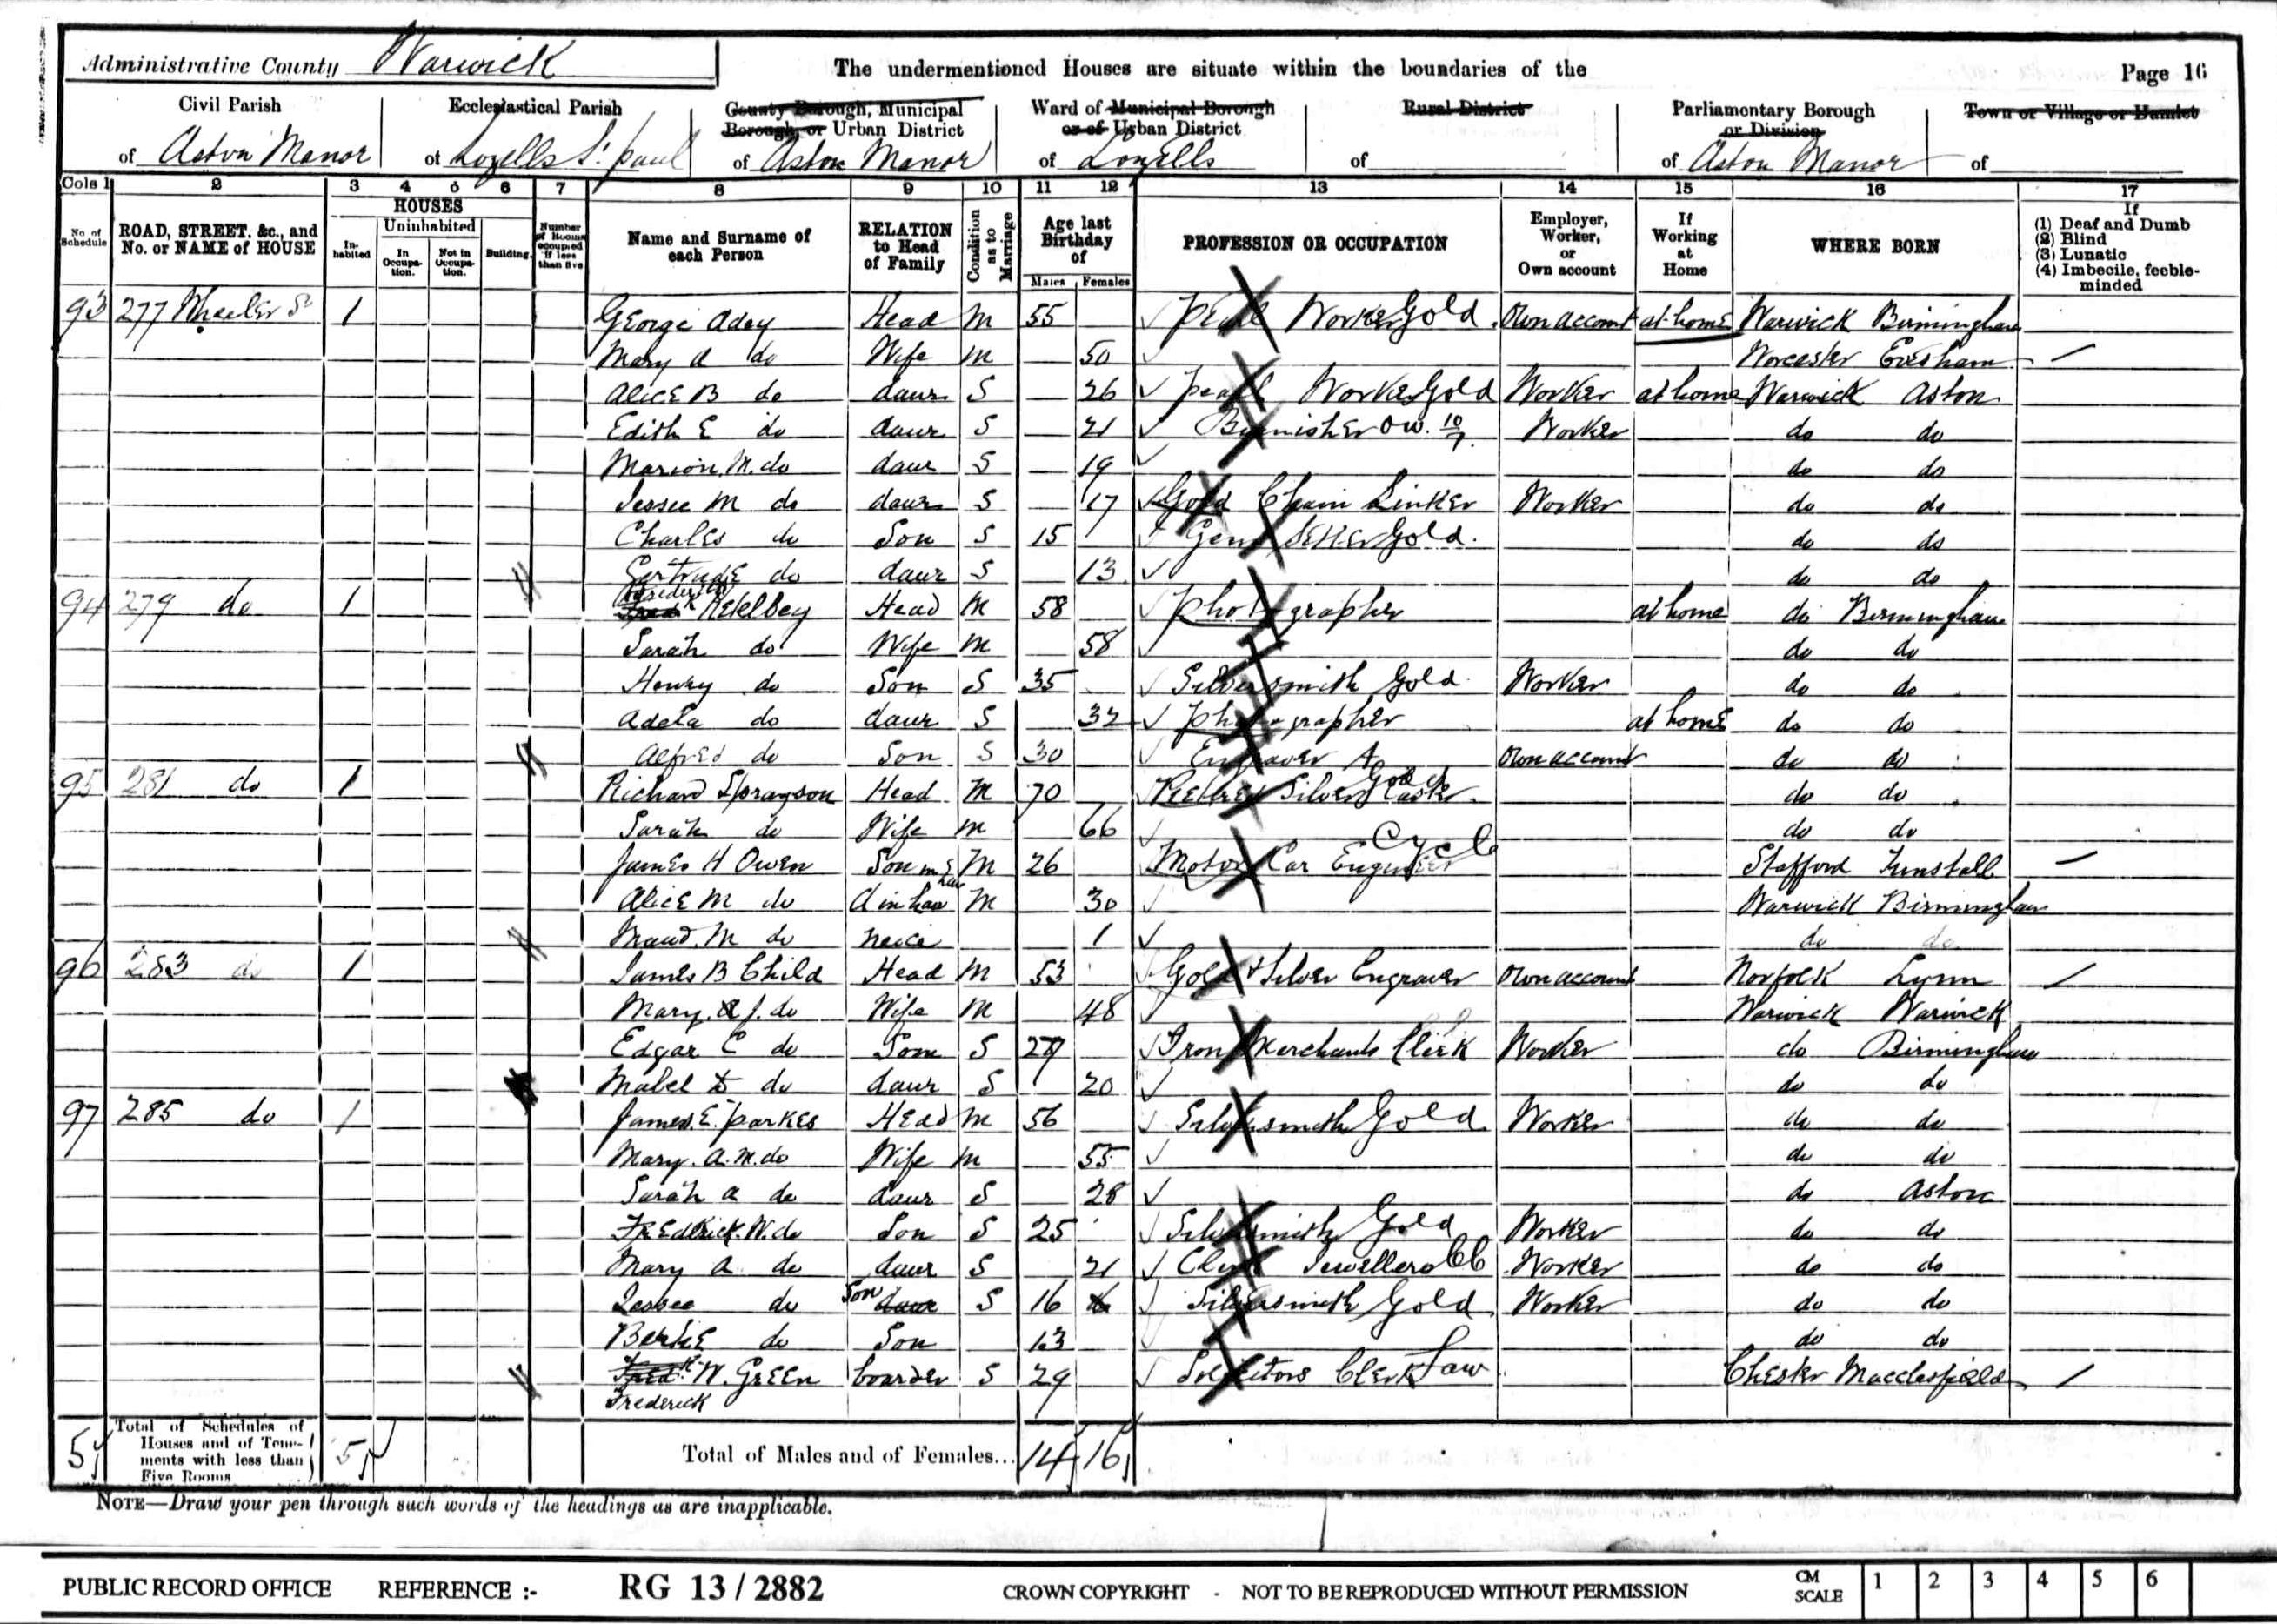 Administrative County Warwick
The undermentioned Houses are situate within the boundaries of the
Page 16
Civil Parish of Aston Manor
Ecclesiastical Parish of Lozells St paul
County Borough, Municipal Borough, or Urban District of Aston Manor
Ward of Municipal Borough or of Urban District of Lozells
Rural District of
Parliamentary Borough or Division of Aston Manor
Town or Village or Hamlet of
Cols 1 2 3 4 5 6 7 8 9 10 11 12 13 14 15 16 17
No. of Schedule
ROAD, STREET, &c., and No. or NAME of HOUSE
HOUSES
Inhabited
Uninhabited
In Occupation.
Not in Occupation.
Building.
Number of Rooms occupied if less than five
Name and Surname of each Person
RELATION to Head of Family
Condition as to Marriage
Age last Birthday of
Males Females
PROFESSION OR OCCUPATION
Employer, Worker, or Own account
If Working at Home
WHERE BORN
If
(1) Deaf and Dumb
(2) Blind
(3) Lunatic
(4) Imbecile, feeble-minded
93 277 Wheeler St 1 George Adey Head M 55 Pearl Worker Gold Own account at home Warwick Birmingham
Mary A do Wife M 50 Worcester Evesham
Alice B do daur S 26 pearl Worker Gold Worker at home Warwick Aston
Edith E do daur S 21 Burnisher O.W. 10/7 Worker do do
Marion M. do daur S 19 do do
Jessee M do daur S 17 Gold Chain Linker Worker do do
Charles do Son S 15 Gem Setter Gold. do do
Gertrude do daur S 13 do do
94 279 do 1 Frederick Ketelbey Head M 58 photographer at home do Birmingham
Sarah do Wife M 58 do do
Henry do Son S 35 Silversmith Gold Worker do do
Adela do daur S 32 photographer at home do do
Alfred do Son S 30 Engraver Own account do do
95 281 do 1 Richard Sprayson Head M 70 Retired Silver Gold Caster do do
Sarah do Wife M 66 do do
James H Owen Son in Law M 26 Motor Car Engineer Cycle Stafford Tunstall
Alice M do d in law M 30 Warwick Birmingham
Maud. M do neice 1 do do
96 283 do 1 James B Child Head M 53 Gold & Silver Engraver Own account Norfolk Lynn
Mary. J. do Wife M 48 Warwick Warwick
Edgar C do Son S 27 Iron Merchants Clerk Worker do Birmingham
Mabel do daur S 20 do do
97 285 do 1 James. E. parkes Head M 56 Silversmith Gold Worker do do
Mary. A. M. do Wife M 55 do do
Sarah A do daur S 28 do Aston
Fredrick. W. do Son S 25 Silversmith Gold Worker do do
Mary A do daur S 21 Clerk Jewellers Worker do do
Jessee do Son daur S 16 Silversmith Gold Worker do do
Bertie do Son 13 do do
Fredk W. Green boarder S 29 Solicitors Clerk Law Chester Macclesfield
Frederick
5 Total of Schedules of Houses and of Tenements with less than Five Rooms 5 Total of Males and of Females... 14 16
NOTE—Draw your pen through such words of the headings as are inapplicable.
PUBLIC RECORD OFFICE REFERENCE :- RG 13 / 2882 CROWN COPYRIGHT - NOT TO BE REPRODUCED WITHOUT PERMISSION CM SCALE 1 2 3 4 5 6